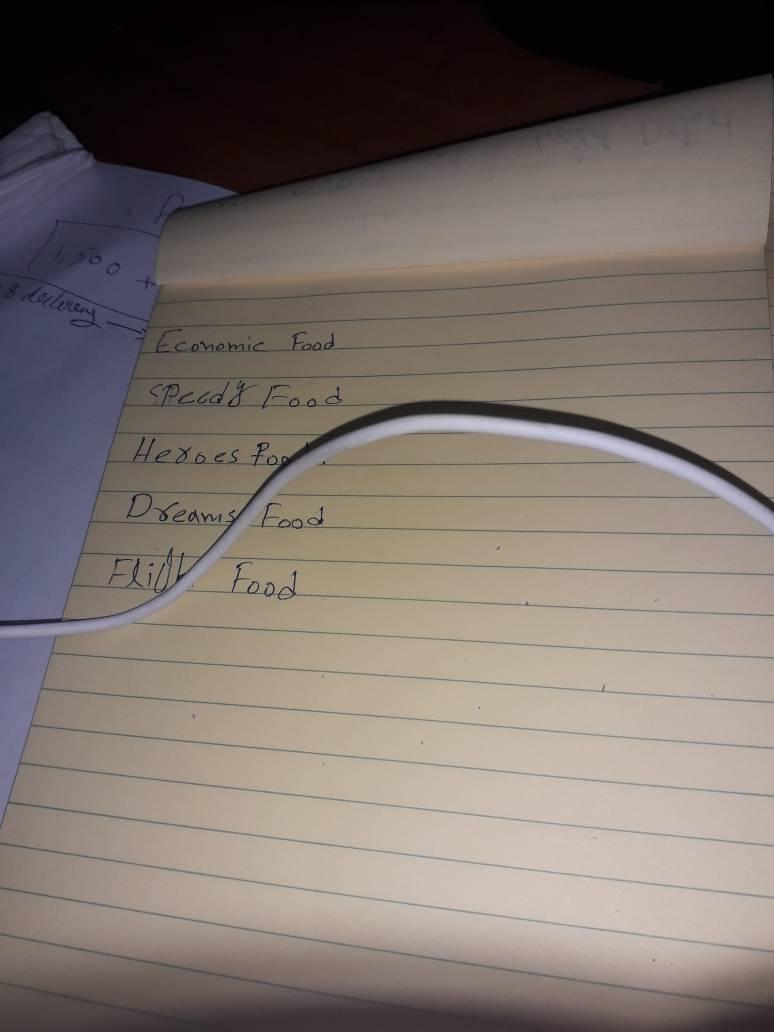 1,500 +
delivery →
Economic Food
Speedy Food
Heroes
Dreams Food
Food